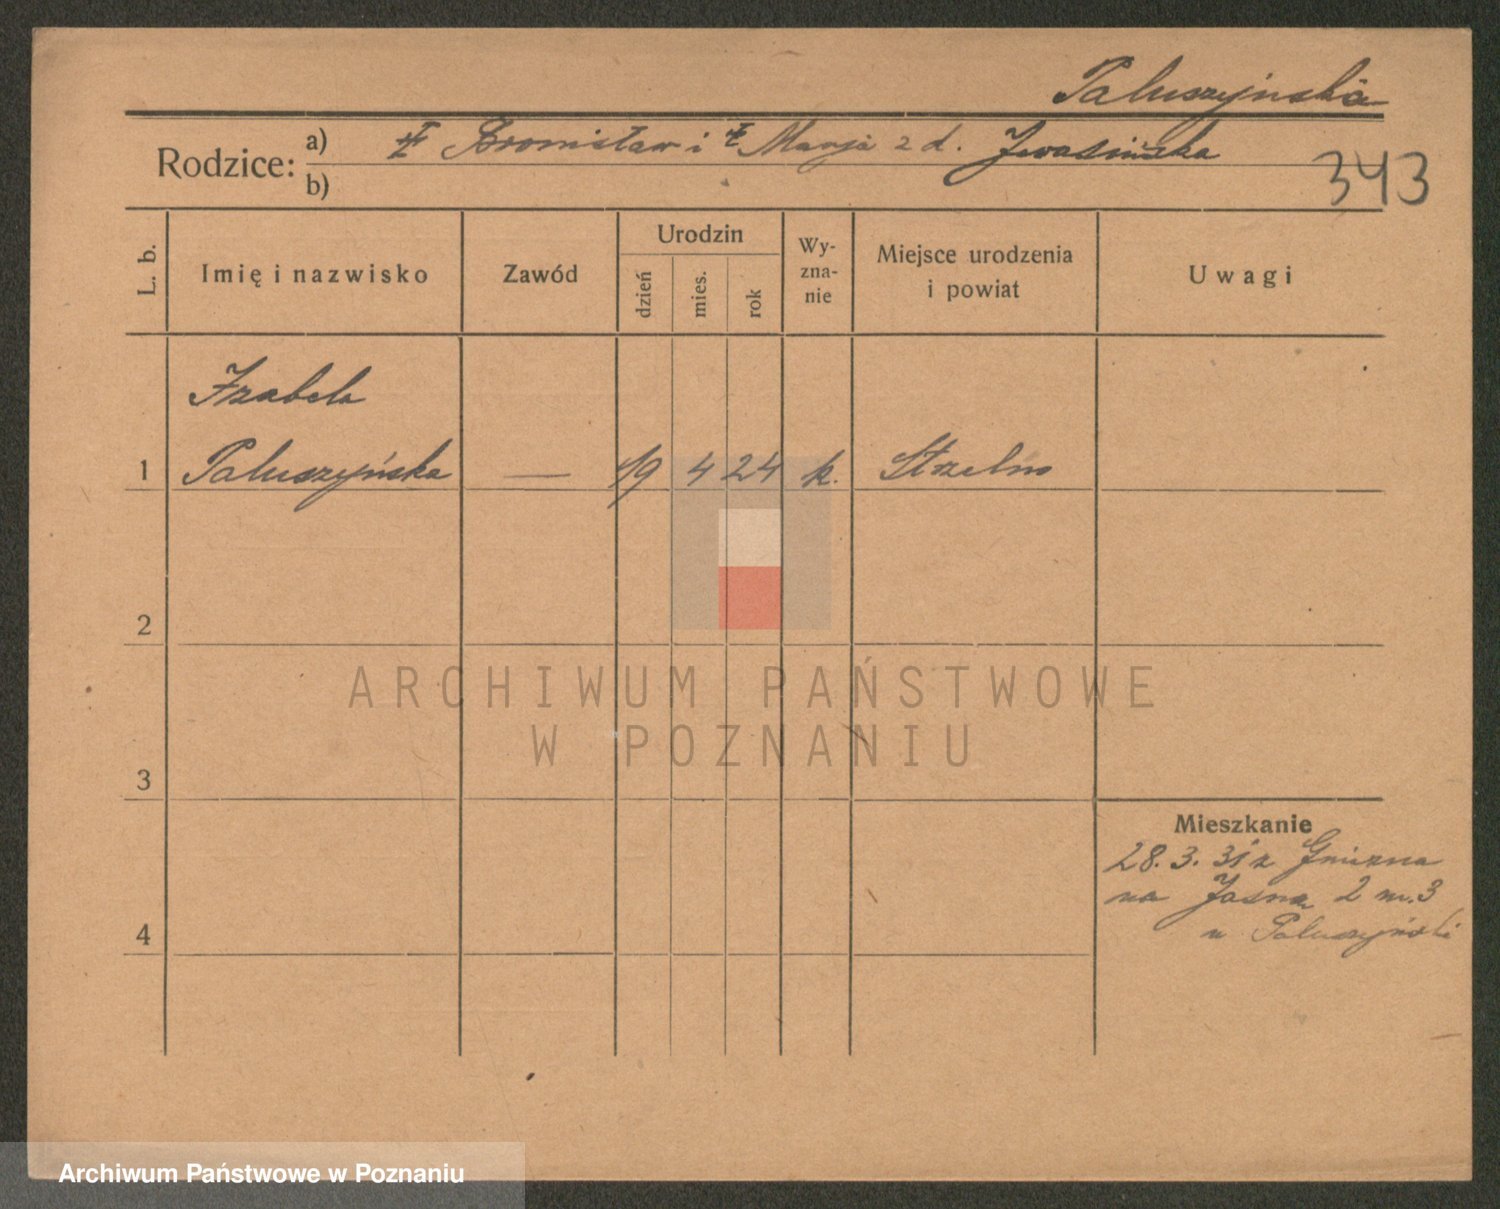 Paluszyńska
Rodzice: a) Bronisław i Marja z d. Iwasińska
b)
343
L. b.
Imię i nazwisko
Zawód
Urodzin
dzień
mies.
rok
Wy-
zna-
nie
Miejsce urodzenia
i powiat
Uwagi
Izabela
1 Paluszyńska — 19 4 24 k. Strzelno
2
ARCHIWUM PAŃSTWOWE
W POZNANIU
3
Mieszkanie
28.3.31 z Gniezna
na Jasna 2 m. 3
u Paluszyński
4
Archiwum Państwowe w Poznaniu